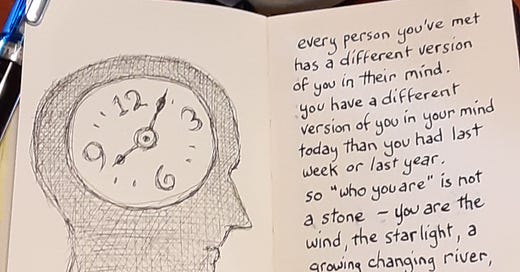 12
3
9
6
every person you've met
has a different version
of you in their mind.
you have a different
version of you in your mind
today than you had last
week or last year.
so "who you are" is not
a stone – you are the
wind, the starlight, a
growing changing river,